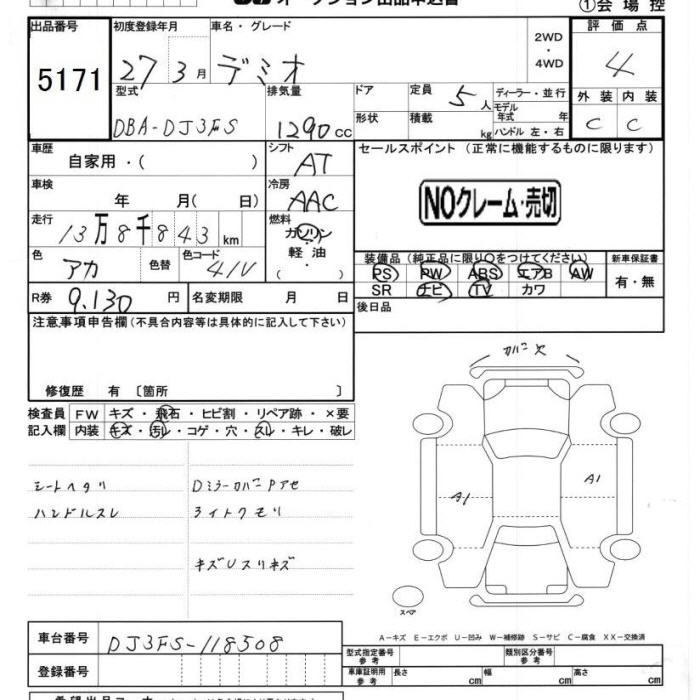 ①会場控
出品番号 初度登録年月 車名・グレード 評価点
5171 27年3月 デミオ 2WD・4WD 4
型式 排気量 ドア 定員 5人 ディーラー・並行 外装 内装
DBA-DJ3FS 1290cc 形状 積載 kg モデル年式 年 ハンドル 左・右 C C
車歴 シフト セールスポイント(正常に機能するものに限ります)
自家用・( ) AT
車検 冷房 NOクレーム・売切
年 月( 日) AAC
走行 燃料
13万8千843km ガソリン
色 色替 色コード 軽油 装備品(純正品に限り○をつけてください) 新車保証書
アカ 41V ( ) PS PW ABS エアB AW 有・無
R券 9,130円 名変期限 月 日 SR ナビ TV カワ
後日品
注意事項申告欄(不具合内容等は具体的に記入して下さい)
修復歴 有〔箇所 〕
検査員 FW キズ・飛石・ヒビ割・リペア跡・×要
記入欄 内装 キズ・汚レ・コゲ・穴・スレ・キレ・破レ
シートヘタリ DミラーカバーPアセ
ハンドルスレ ライトクモリ
キズUスリキズ
A1
A1
スペア
A-キズ E-エクボ U-凹み W-補修跡 S-サビ C-腐食 XX-交換済
車台番号 DJ3FS-118508
登録番号
型式指定番号 参考 類別区分番号 参考
車庫証明用 参考 長さ cm 幅 cm 高さ cm